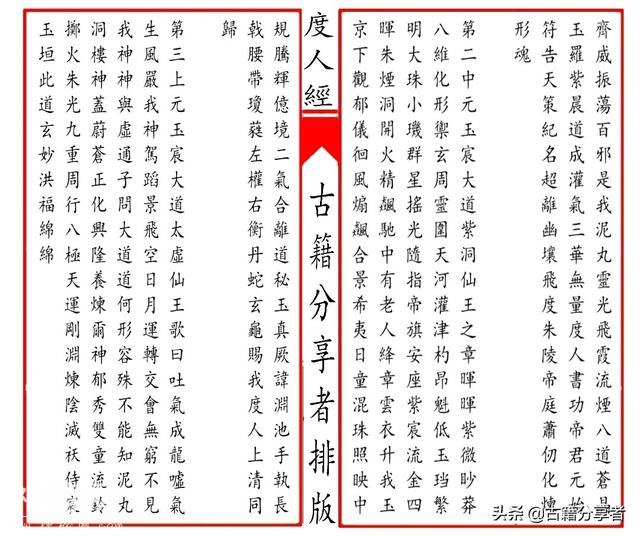 齊威振蕩百邪是我泥丸靈光飛霞流煙八道蒼
玉羅紫晨道成灌氣三華無量度人書功帝君元始
符告天策紀名超離幽壤飛度朱陵帝庭蕭仞化煉
形魂
第二中元玉宸大道紫洞仙王之章暉暉紫微眇莽
八維化形禦玄周靈圍天河灌津杓昂魁低玉璫繁
明大珠小璣群星搖光隨指帝旗安座紫宸流金四
暉朱煙洞開火精飆馳中有老人絳章雲衣升我玉
京下觀郁儀徊風煽飆合景希夷日童混珠照映中
度人經
古籍分享者排版
規騰輝億境二氣合離道秘玉真厥諱淵池手執長
戟腰帶瓊蕤左權右衡丹蛇玄龜賜我度人上清同
歸
第三上元玉宸大道太虛仙王歌曰吐氣成龍噓氣
生風嚴我神駕蹈景飛空日月運轉交會無窮不見
我神神與虛通子問大道道何形容殊不能知泥丸
洞樓神蓋蔚蒼正化興隆養煉爾神郁秀雙童流鈴
擲火朱光九重周行八極天運剛淵煉陰滅祅侍宸
玉垣此道玄妙洪福綿綿
头条 @古籍分享者